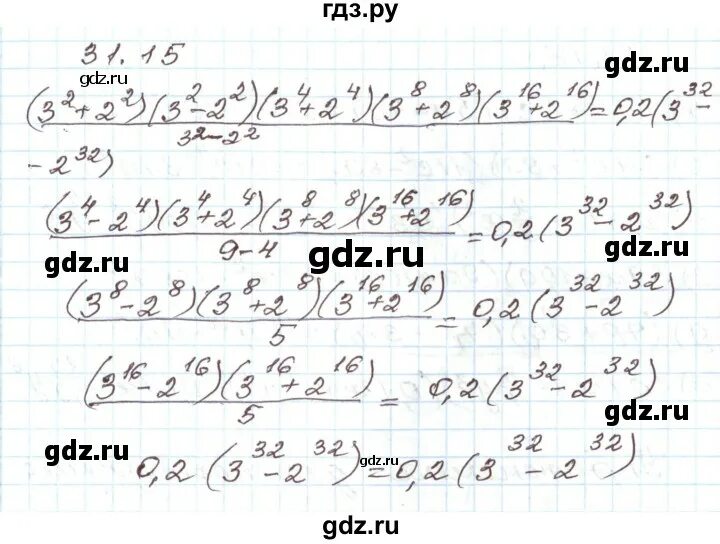 гдз.ру
31.15
gdz.ru
gdz.ru
(3² + 2²)(3² - 2²)(3⁴ + 2⁴)(3⁸ + 2⁸)(3¹⁶ + 2¹⁶) = 0,2(3³² -
3² - 2²
- 2³²)
(3⁴ - 2⁴)(3⁴ + 2⁴)(3⁸ + 2⁸)(3¹⁶ + 2¹⁶) = 0,2(3³² - 2³²)
9 - 4
gdz.ru
gdz.ru
gdz.ru
(3⁸ - 2⁸)(3⁸ + 2⁸)(3¹⁶ + 2¹⁶) = 0,2(3³² - 2³²)
5
gdz.ru
(3¹⁶ - 2¹⁶)(3¹⁶ + 2¹⁶) = 0,2(3³² - 2³²)
5
gdz.ru
gdz.ru
0,2(3³² - 2³²) = 0,2(3³² - 2³²)
gdz.ru
gdz.ru
gdz.ru